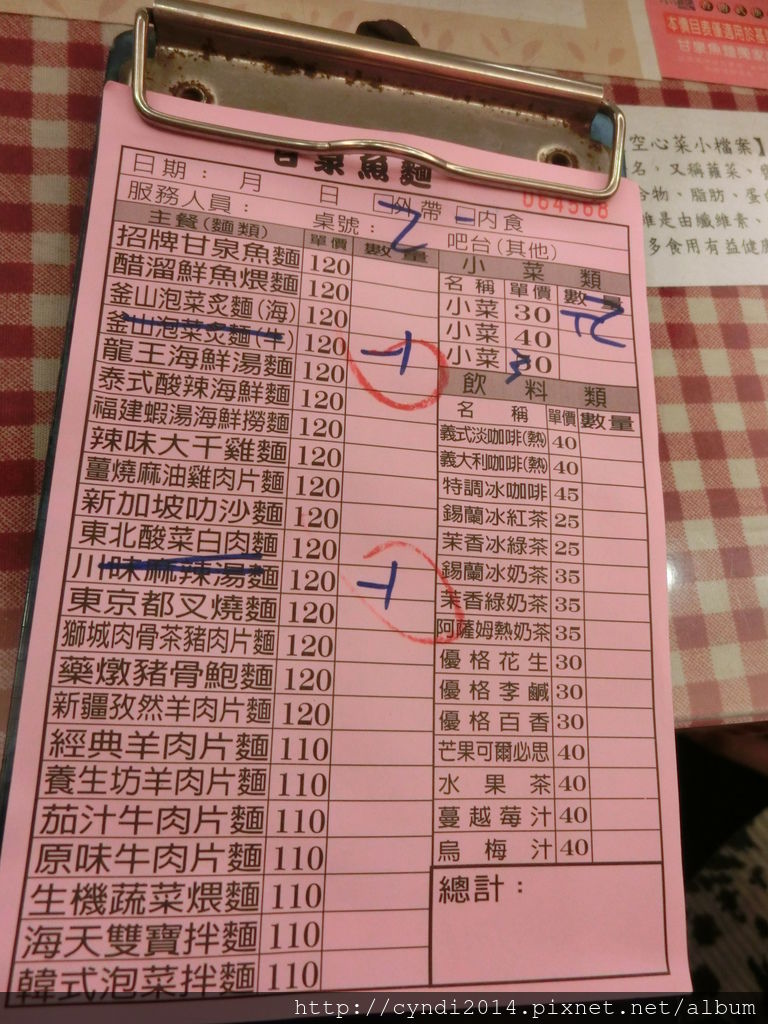 本價目表僅適用於基
甘泉魚麵
空心菜小檔案】
名，又稱蕹菜、
合物、脂肪、蛋白
維是由纖維素、
多食用有益健康
甘泉魚麵
064568
日期： 月 日 外帶 內食
服務人員： 桌號： 2 吧台(其他)
主餐(麵類) 單價 數量
招牌甘泉魚麵 120
醋溜鮮魚煨麵 120
釜山泡菜炙麵(海) 120
釜山泡菜炙麵(牛) 120
龍王海鮮湯麵 120
泰式酸辣海鮮麵 120
福建蝦湯海鮮撈麵 120
辣味大千雞麵 120
薑燒麻油雞肉片麵 120
新加坡叻沙麵 120
東北酸菜白肉麵 120
川味麻辣湯麵 120
東京都叉燒麵 120
獅城肉骨茶豬肉片麵 120
藥燉豬骨鮑麵 120
新疆孜然羊肉片麵 120
經典羊肉片麵 110
養生坊羊肉片麵 110
茄汁牛肉片麵 110
原味牛肉片麵 110
生機蔬菜煨麵 110
海天雙寶拌麵 110
韓式泡菜拌麵 110
小菜類
名稱 單價 數量
小菜 30
小菜 40
小菜
飲料類
名稱 單價 數量
義式淡咖啡(熱) 40
義大利咖啡(熱) 40
特調冰咖啡 45
錫蘭冰紅茶 25
茉香冰綠茶 25
錫蘭冰奶茶 35
茉香綠奶茶 35
阿薩姆熱奶茶 35
優格花生 30
優格李鹹 30
優格百香 30
芒果可爾必思 40
水果茶 40
蔓越莓汁 40
烏梅汁 40
總計：
http://cyndi2014.pixnet.net/album